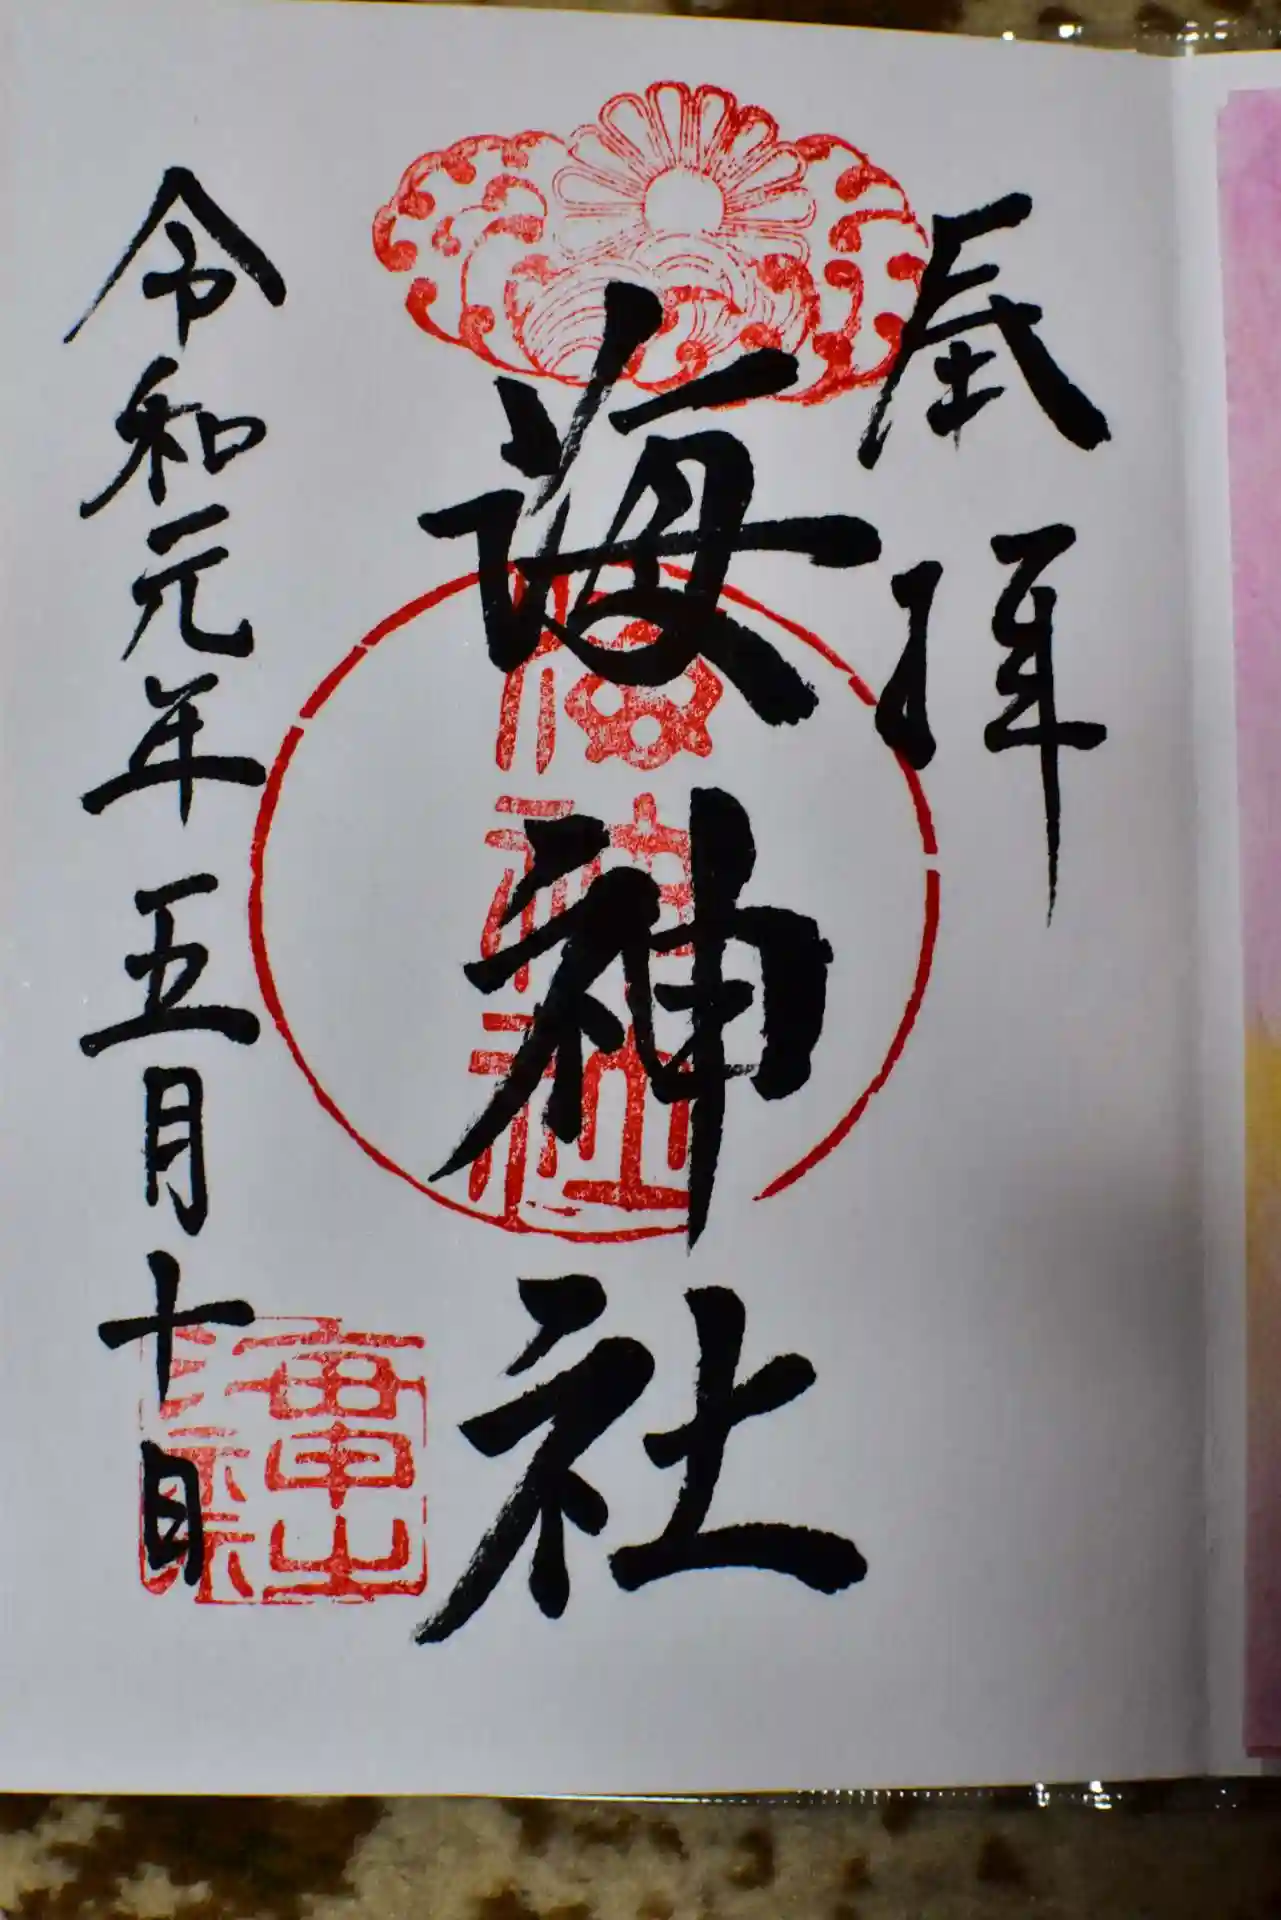 奉拝
海神社
海神社
令和元年五月十日